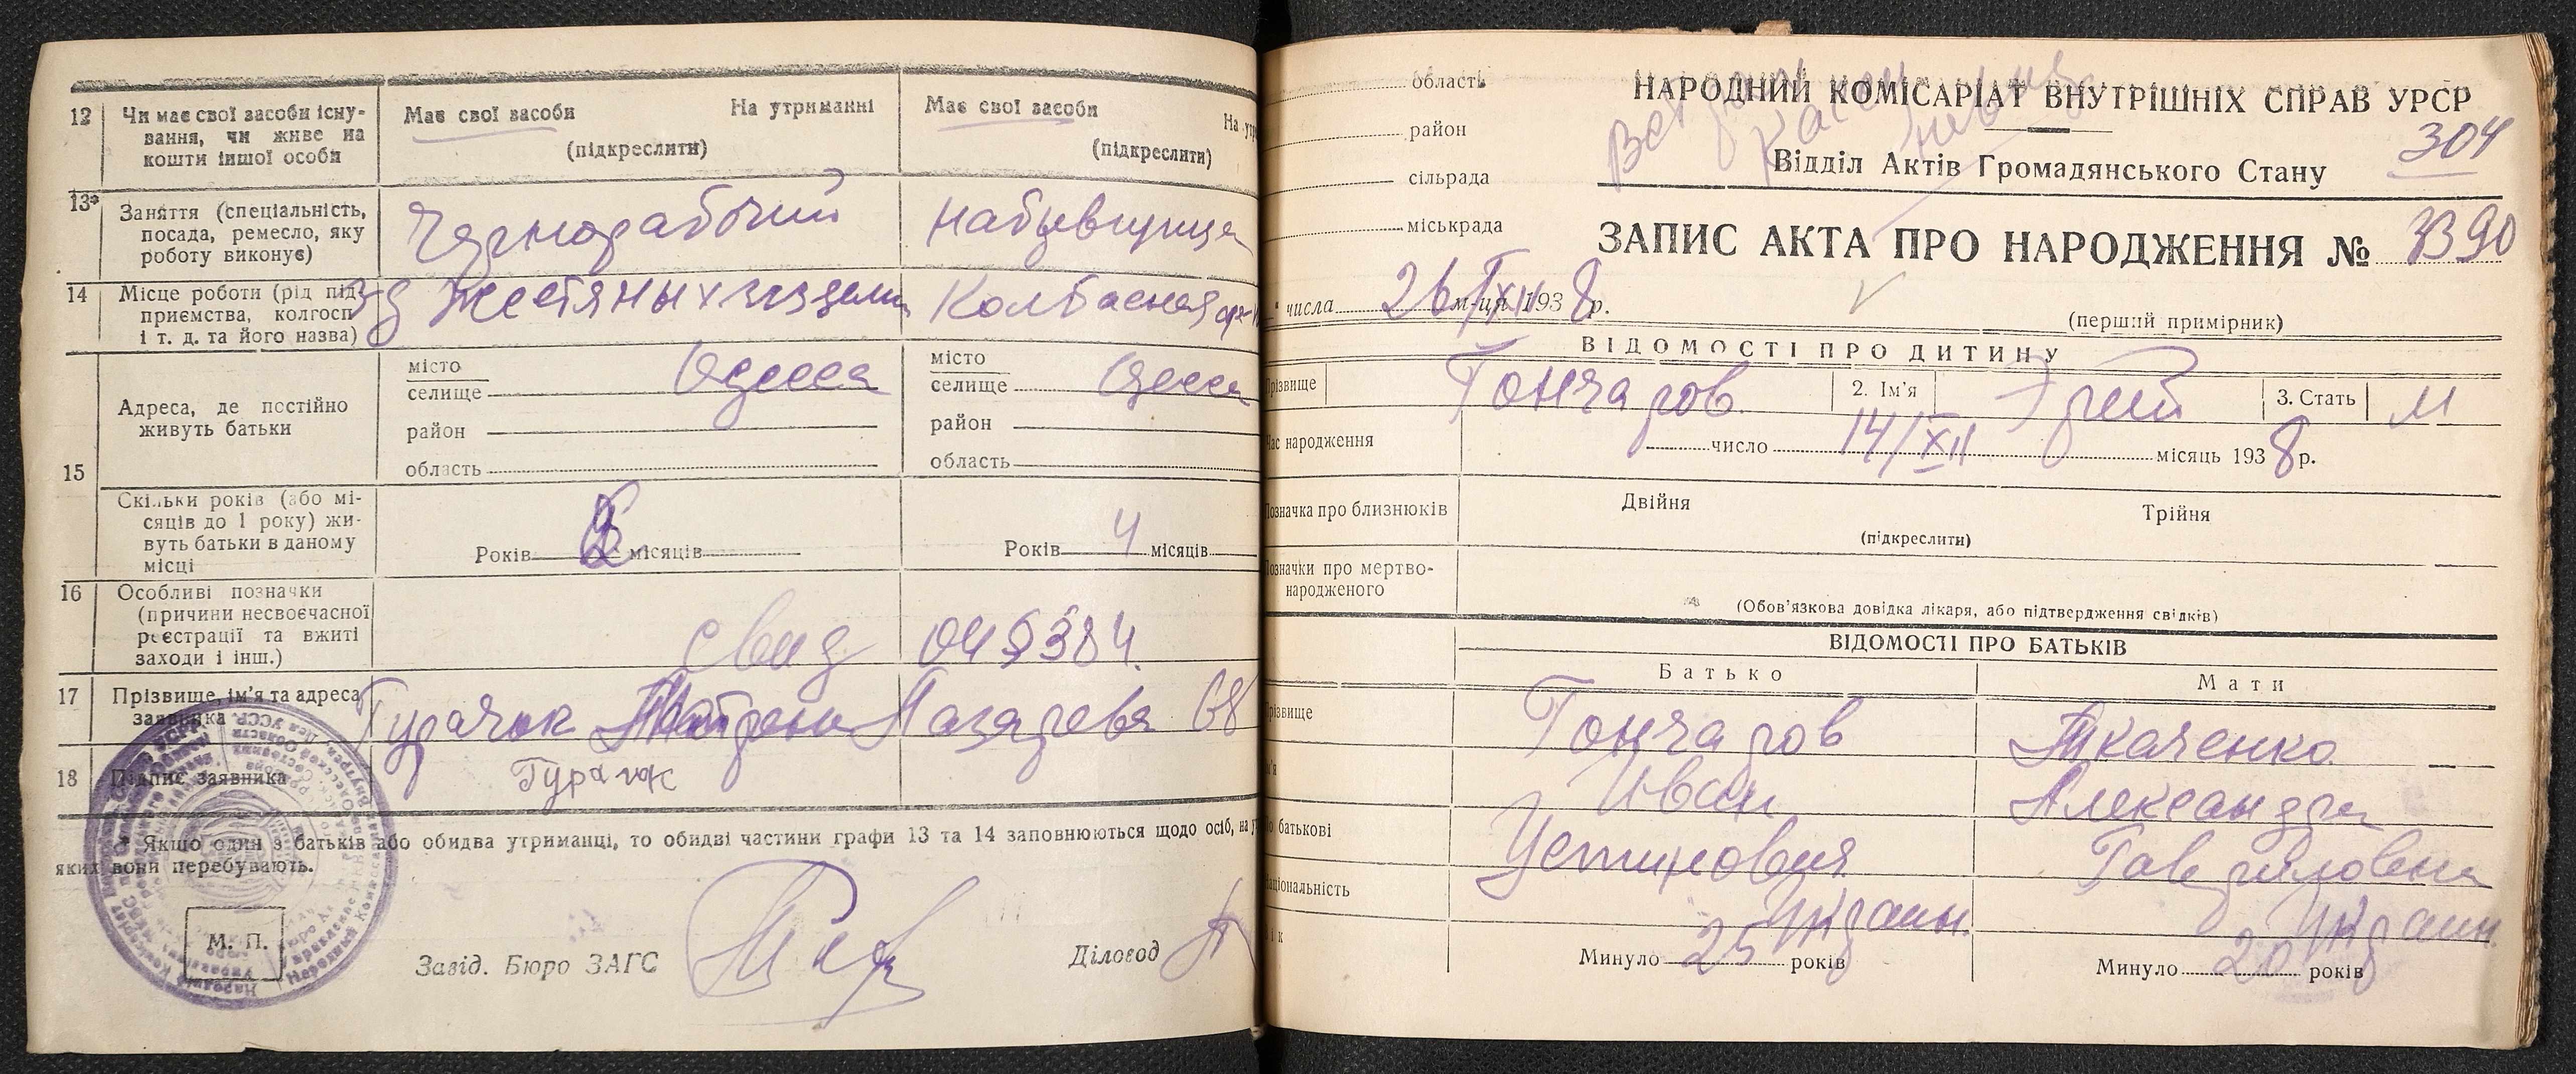 12 Чи має свої засоби існу-
вання, чи живе на
кошти іншої особи
Має свої засоби На утриманні
(підкреслити)
Має свої засоби На утр
(підкреслити)
13* Заняття (спеціальність,
посада, ремесло, яку
роботу виконує)
Чернорабочий
набивщица
14 Місце роботи (рід під-
приємства, колгосп
і т. д. та його назва)
З-д жестяных изделий
Колбасная
15 Адреса, де постійно
живуть батьки
місто
селище Одесса
район
область
місто
селище Одесса
район
область
Скільки років (або мі-
сяців до 1 року) жи-
вуть батьки в даному
місці
Років місяців
Років 4 місяців
16 Особливі позначки
(причини несвоєчасної
реєстрації та вжиті
заходи і інш.)
Свид
17 Прізвище, ім'я та адреса
заявника
Лазарева 68
18 Підпис заявника
* Якщо один з батьків або обидва утриманці, то обидві частини графи 13 та 14 заповнюються щодо осіб, на у
яких вони перебувають.
М. П.
Завід. Бюро ЗАГС
Діловод
область
район
сільрада
міськрада
НАРОДНИЙ КОМІСАРІАТ ВНУТРІШНІХ СПРАВ УРСР
304
Відділ Актів Громадянського Стану
ЗАПИС АКТА ПРО НАРОДЖЕННЯ № 3390
" числа 26/XII м-ця 1938 р.
(перший примірник)
ВІДОМОСТІ ПРО ДИТИНУ
різвище Гончаров 2. Ім'я 3. Стать М
ас народження число 14/XII місяць 1938 р.
означка про близнюків Двійня Трійня
(підкреслити)
означки про мертво-
народженого
(Обов'язкова довідка лікаря, або підтвердження свідків)
ВІДОМОСТІ ПРО БАТЬКІВ
Батько Мати
різвище Гончаров Ткаченко
м'я Иван Александра
о батькові Устинович Гавриловна
аціональність Украин. Украин.
ік Минуло 25 років Минуло 20 років